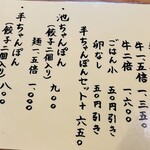 牛一五倍　一、三五〇
牛二倍　一、六〇〇
ごはん小　五〇円引き
卵なし　五〇円引き
手ちゃんぽんセット＋六五〇
・池ちゃんぽん　九〇〇
麺一、五倍　一、〇〇〇
（餃子二個入り）
・手ちゃんぽん　八〇〇
（餃子二個入り）